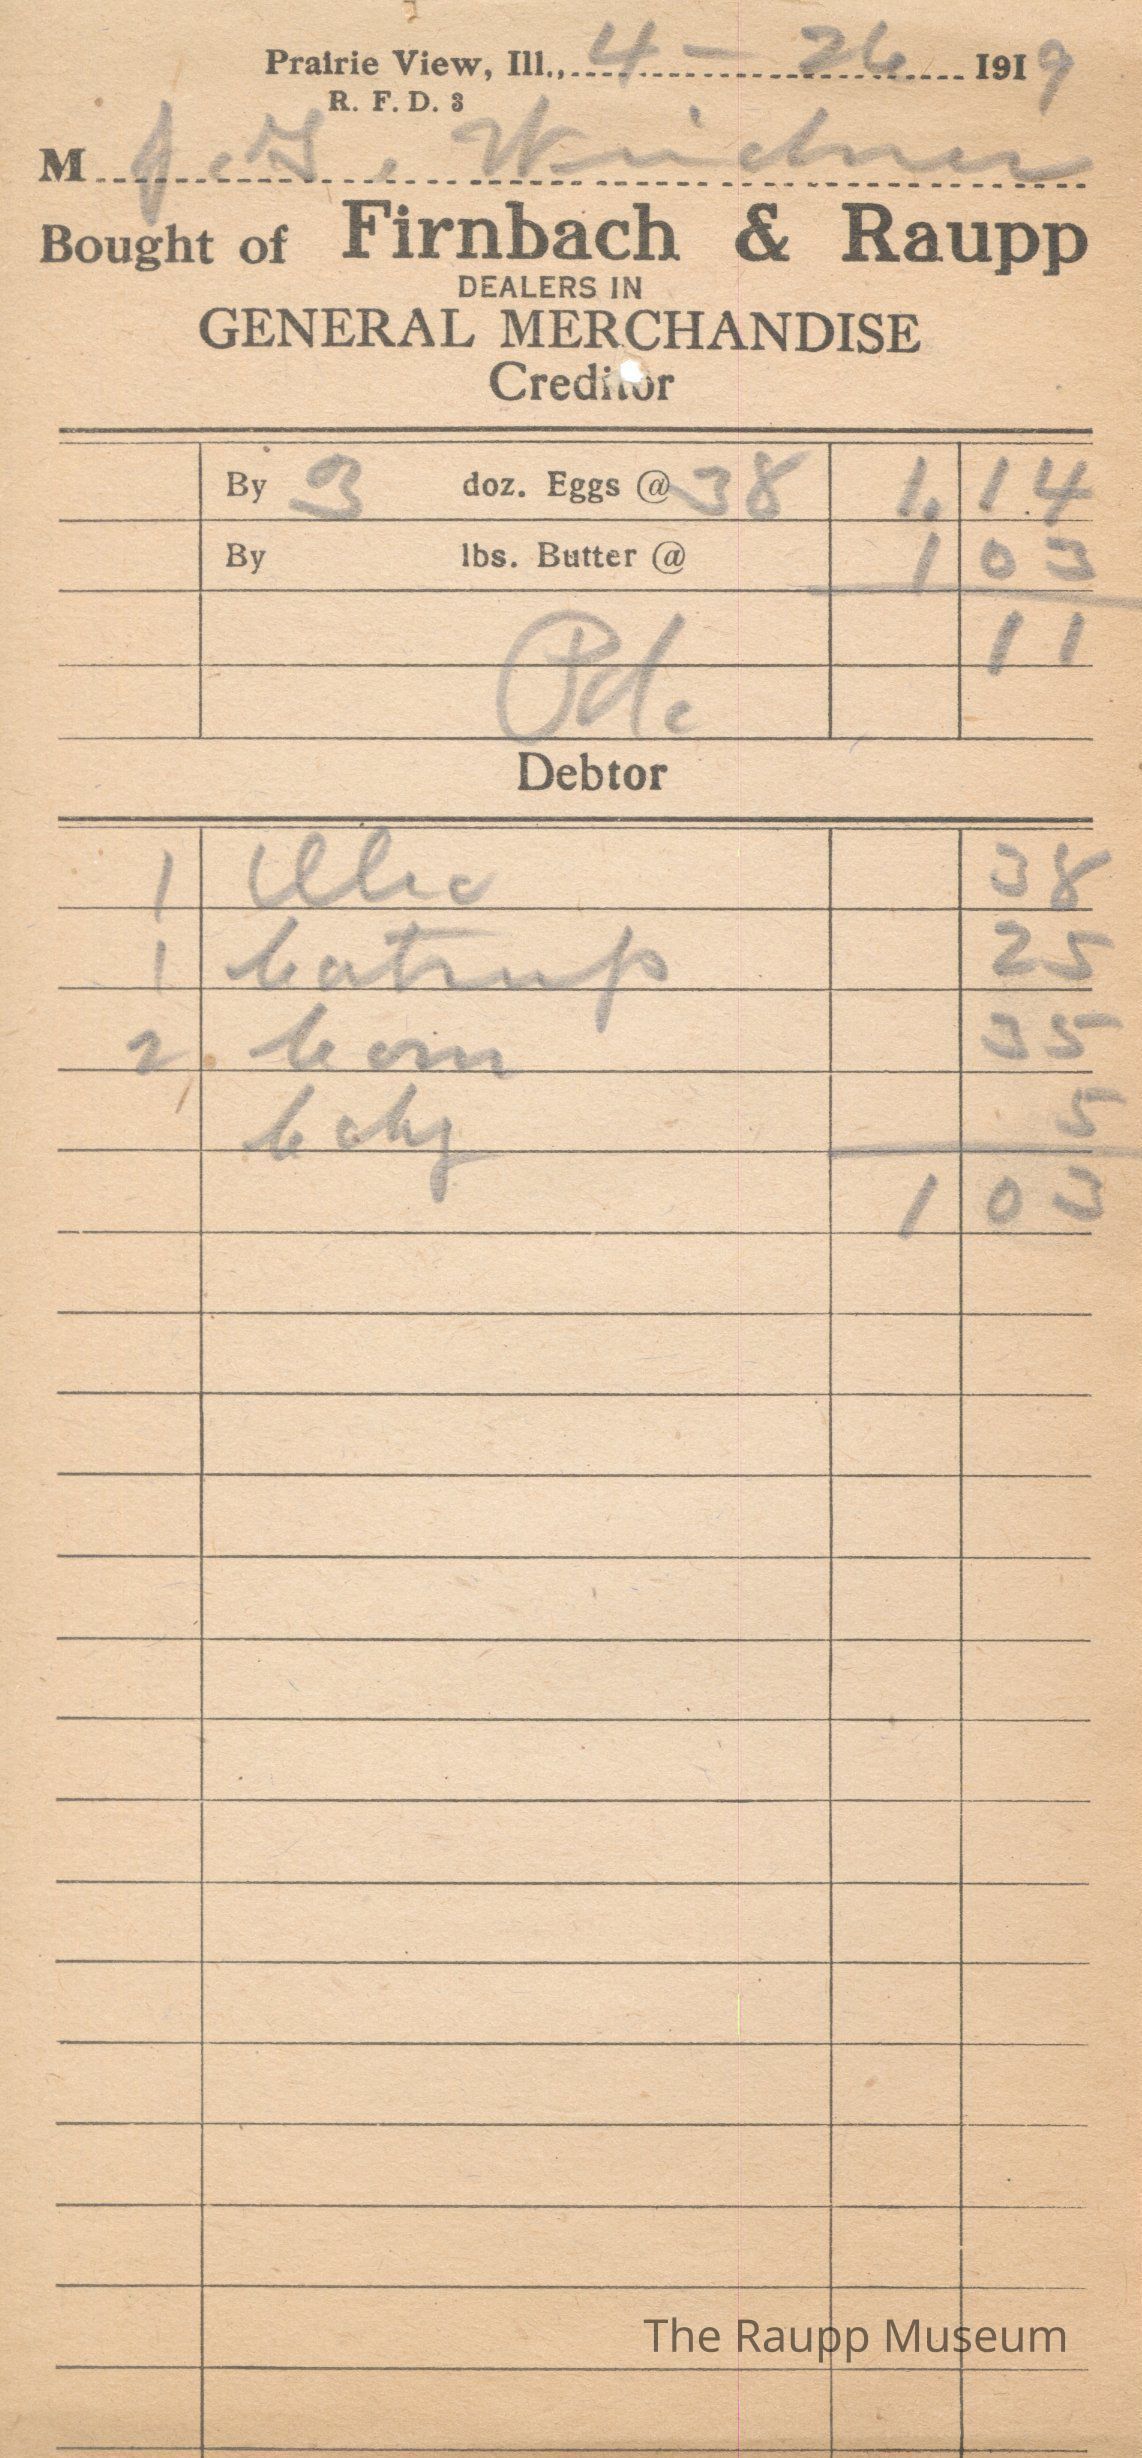 Prairie View, Ill., 4 - 26 1919
R. F. D. 3
M J. G. Weidner
Bought of Firnbach & Raupp
DEALERS IN
GENERAL MERCHANDISE
Creditor
By 3 doz. Eggs @ 38 1.14
By lbs. Butter @ 1 03
11
Pd.
Debtor
1 Oleo 38
1 Catsup 25
2 Corn 35
5
1 03
The Raupp Museum